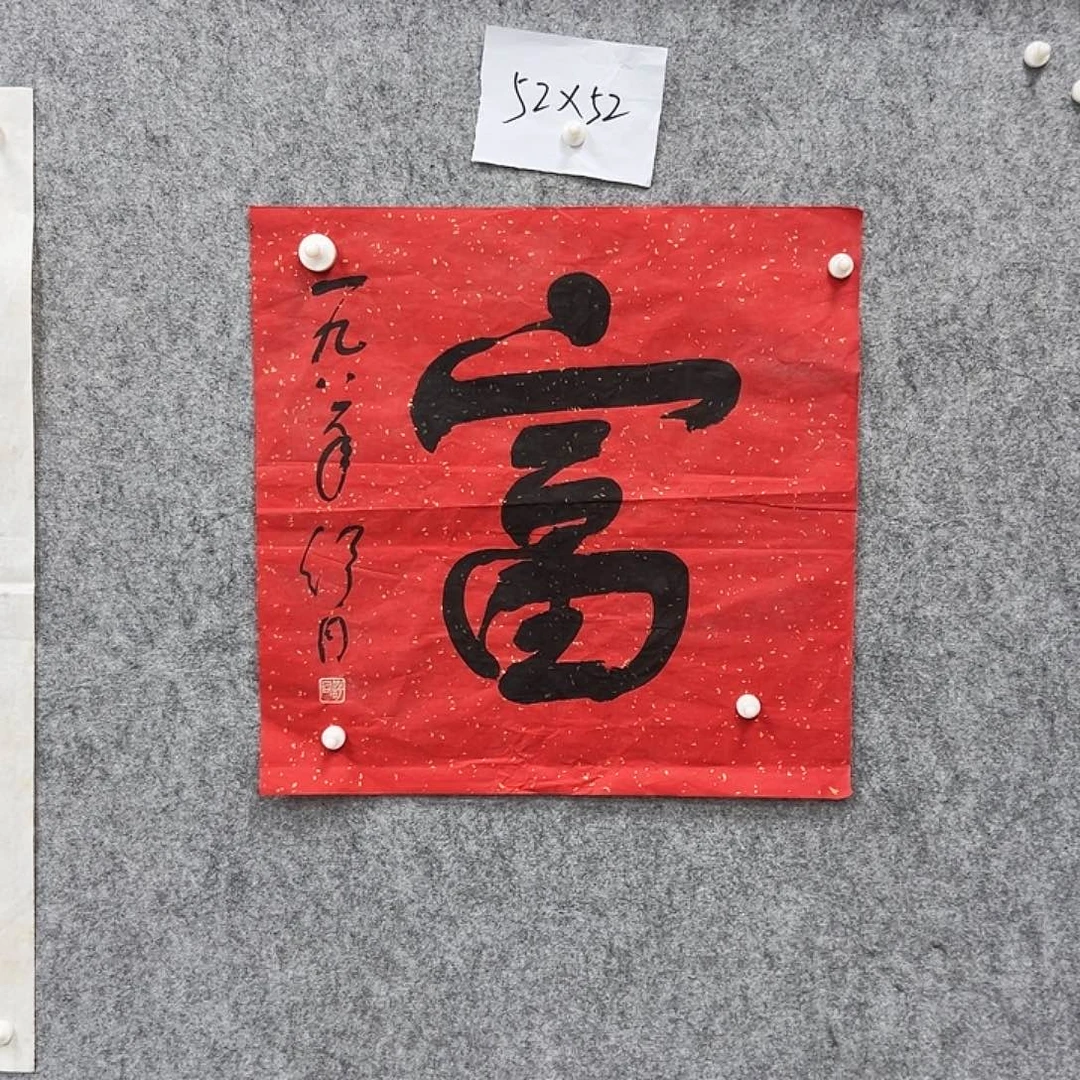 52×52
富
一九八年